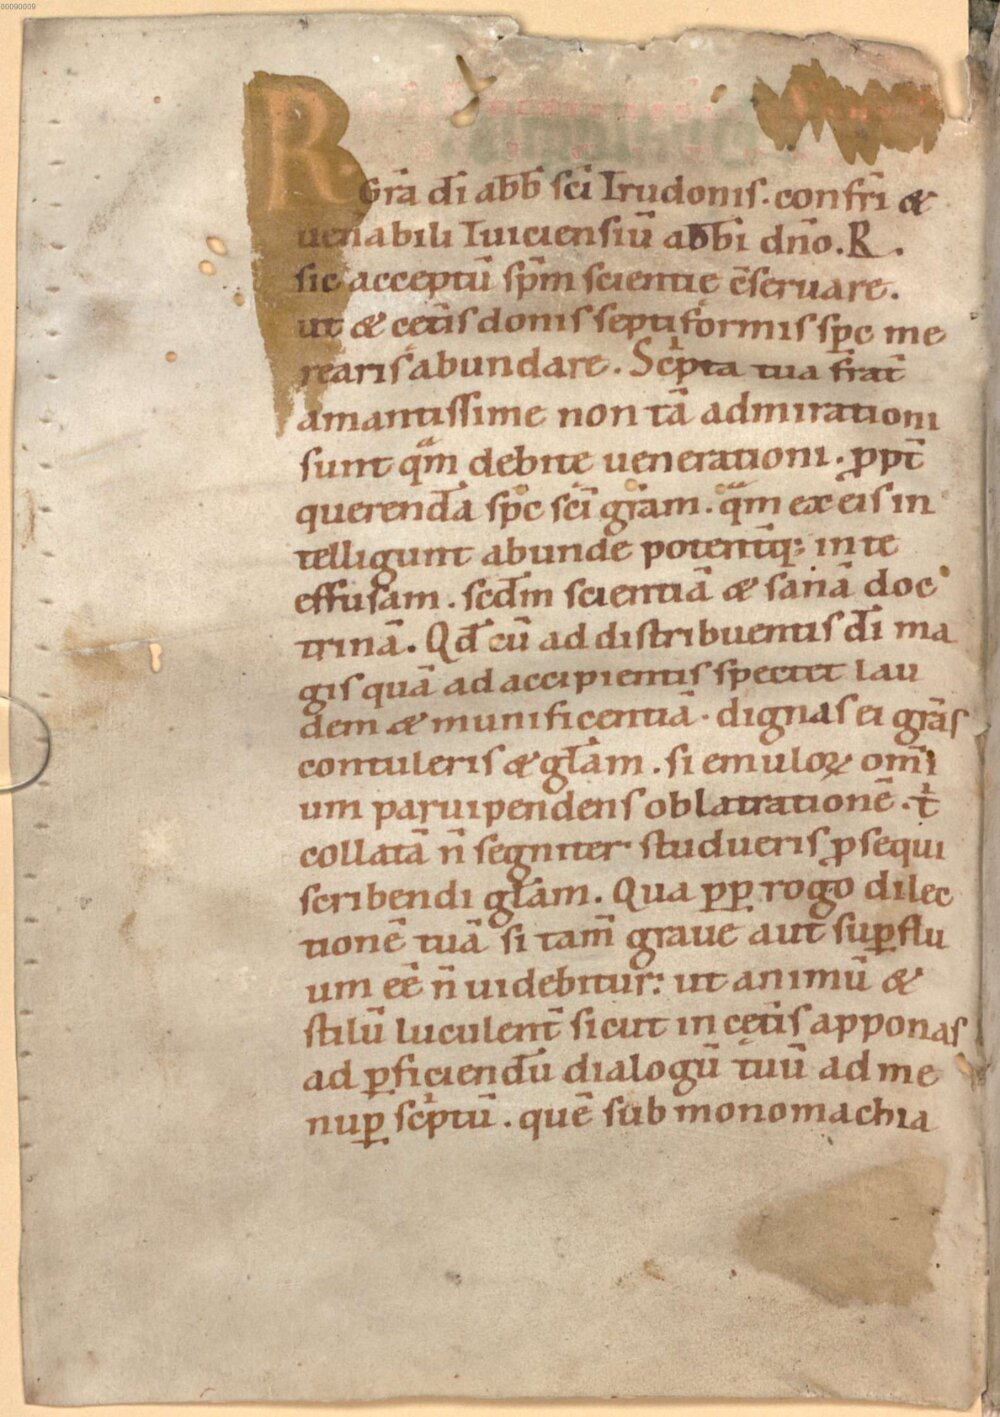 00090009
R.
Gr̄a dī abb̄ sc̄i Trudonis. confr̄i &
uenabili Tuiciensiū abbī dn̄o. R.
sic acceptū sp̄m scientię c̄seruare.
ut & cęt̄is donis septiformis sp̄c me
rearis abundare. Scͥpta tua frat̄
amantissime non tā admirationi
sunt qͣm debite uenerationi. ꝓpt̄
querend̄a sp̄c sc̄i gr̄am. qͣm ex eis in
telligunt abunde potent̄q; in te
effusam. scd̄m scientiā & sanā doc
trinā. Qd̄ cū ad distribuentis dī ma
gis quā ad accipientis spectet lau
dem & munificentiā. dignas ei gr̄as
contuleris & gl̄am. si emuloꝝ omī
um paruipendens oblatrationē. t̄
collatā n̄ segniter studueris ꝓsequi
scribendi gl̄am. Qua ꝓp̱ rogo dilec
tionē tuā si tam̄ graue aut suꝑflu
um eē n̄ uidebitur: ut animū &
stilū luculent̄ sicut in cęt̄is apponas
ad ꝑficiend̄u dialogū tuū ad me
nuꝑ scͥptū. quē sub monomachia